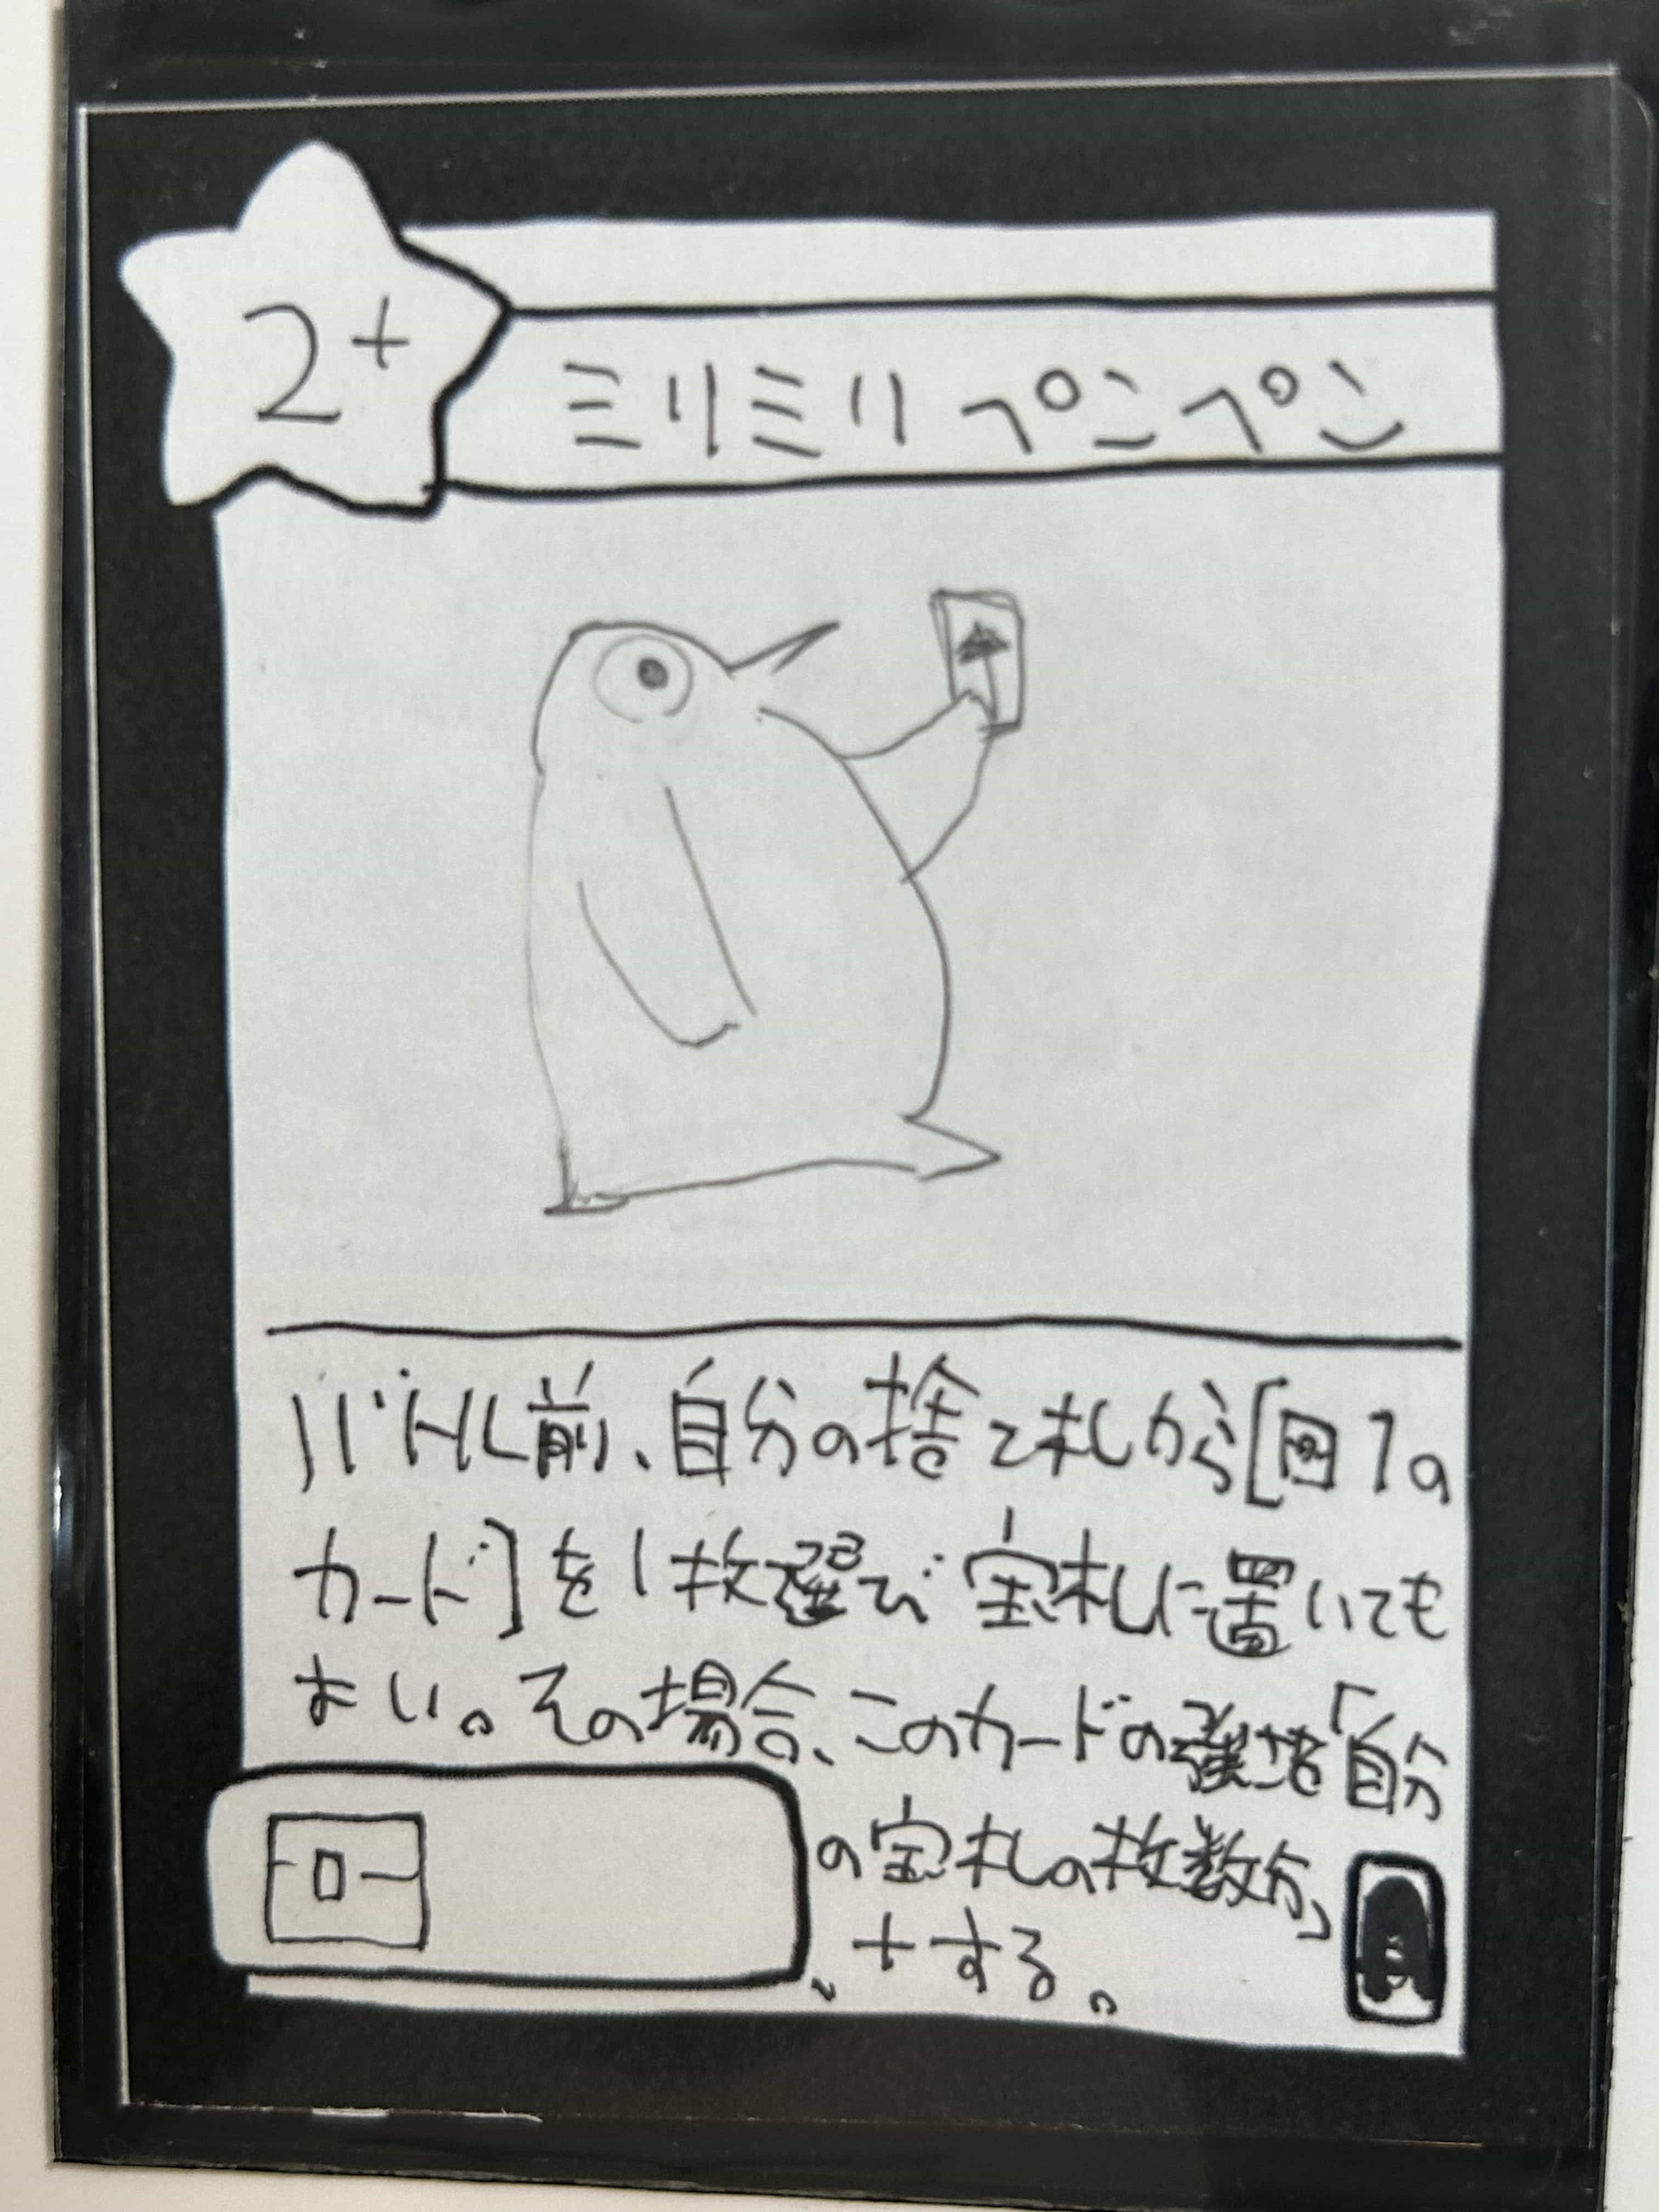 2+
ミリミリペンペン
バトル前、自分の捨て札から[回1の
カード]を1枚選び宝札に置いても
よい。その場合、このカードの強さを「自分
の宝札の枚数分」
、+する。